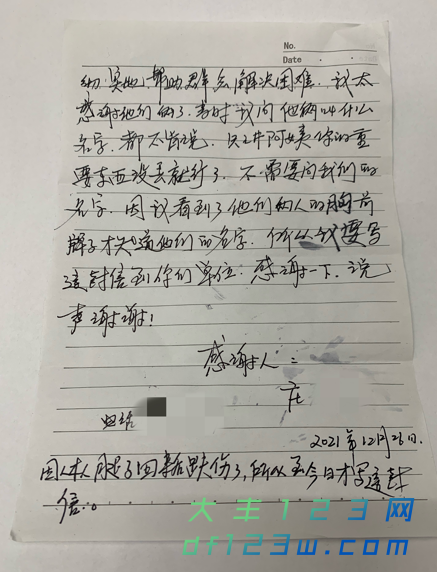 No.
Date
纳、实地、帮助群众解决困难. 我太
感谢他们俩了. 当时我问他俩叫什么
名字. 都不肯说. 只讲阿姨你的重
要东西没丢就行了. 不需要问我们的
名字. 因我看到了他们俩人的胸前
牌子才知道他们的名字. 所以我要写
这封信到你们单位. 感谢一下. 说
声谢谢!
感谢人:
庄
电话
2021年12月26日.
因本人 了回家后跌伤了, 所以至今日才写这封
信.。
大丰123网
df123w.com